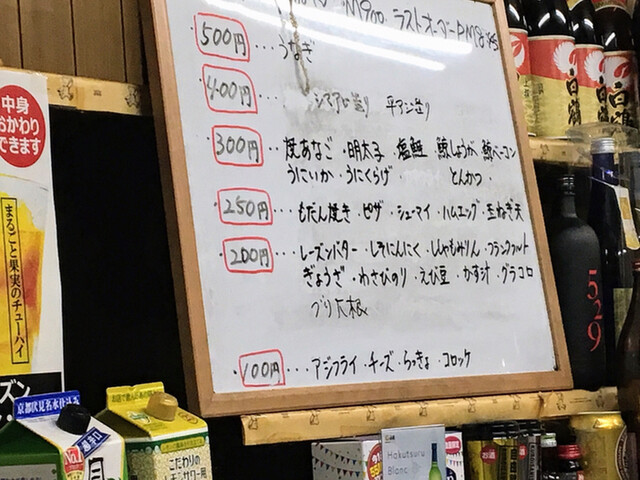 PM900 ラストオーダーPM8:45
500円…うなぎ
400円…シマアジ造り 平アジ造り
300円…焼あなご・明太子・塩鮭・鯨しょうが・鯨ベーコン
うにいか・うにくらげ・とんかつ・
250円…もだん焼き・ピザ・シューマイ・ハムエッグ・玉ねぎ天
200円…レーズンバター・しそにんにく・ししゃもみりん・フランクフルト
ぎょうざ・わさびのり・えび豆・かす汁・グラコロ
ブリ大根
100円…アジフライ・チーズ・らっきょ・コロッケ
中身
おかわり
できます
まるごと果実のチューハイ
白鶴
529
京都伏見名水仕込み
こだわりの
レモンサワー用
Hakutsuru
Blanc